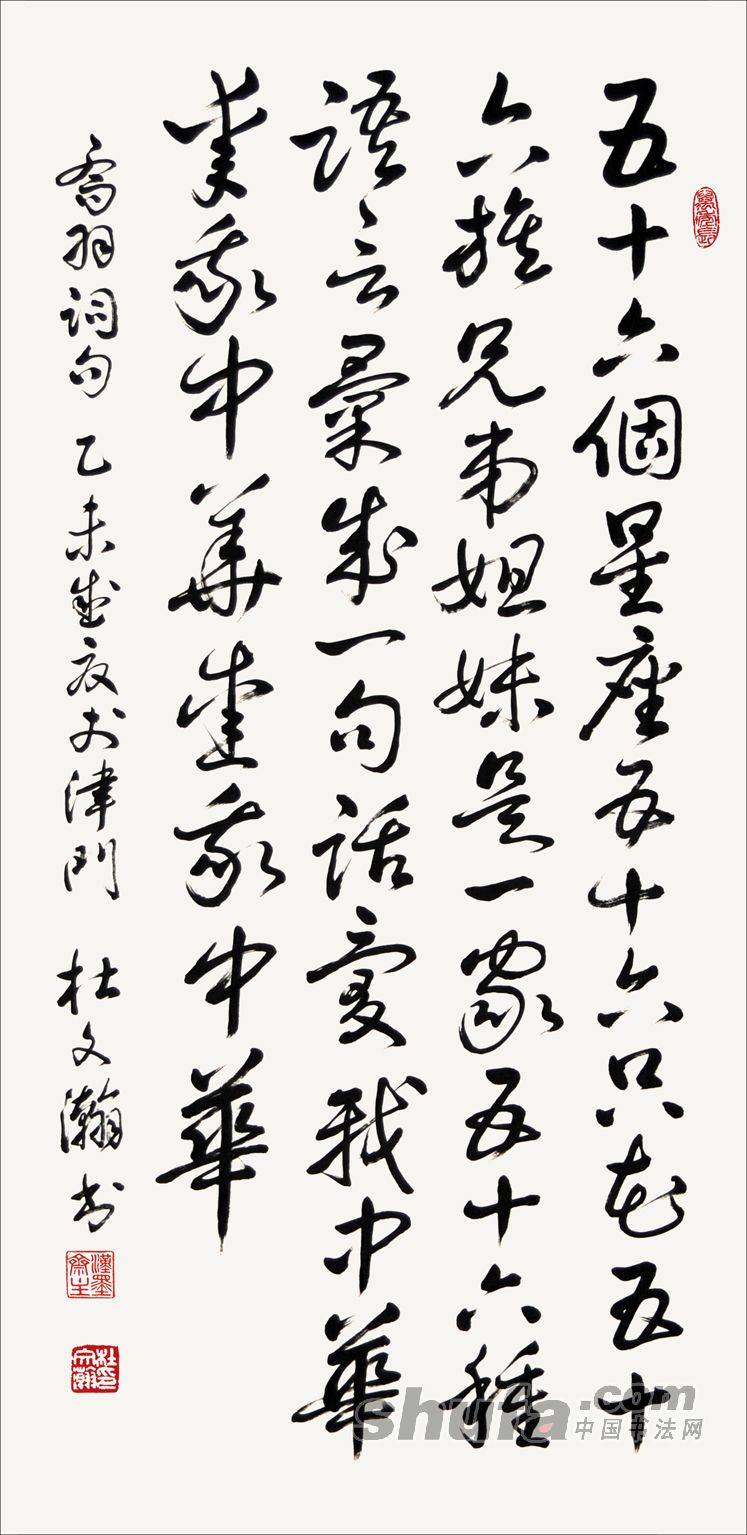 五十六個星座五十六只花五十
六族兄弟姐妹是一家五十六種
語言彙成一句話愛我中華
愛我中華愛我中華
喬羽詞句 乙未盛夏於津門 杜文瀚書
漢墨齋主
杜印文瀚
shufa.com
中国书法网